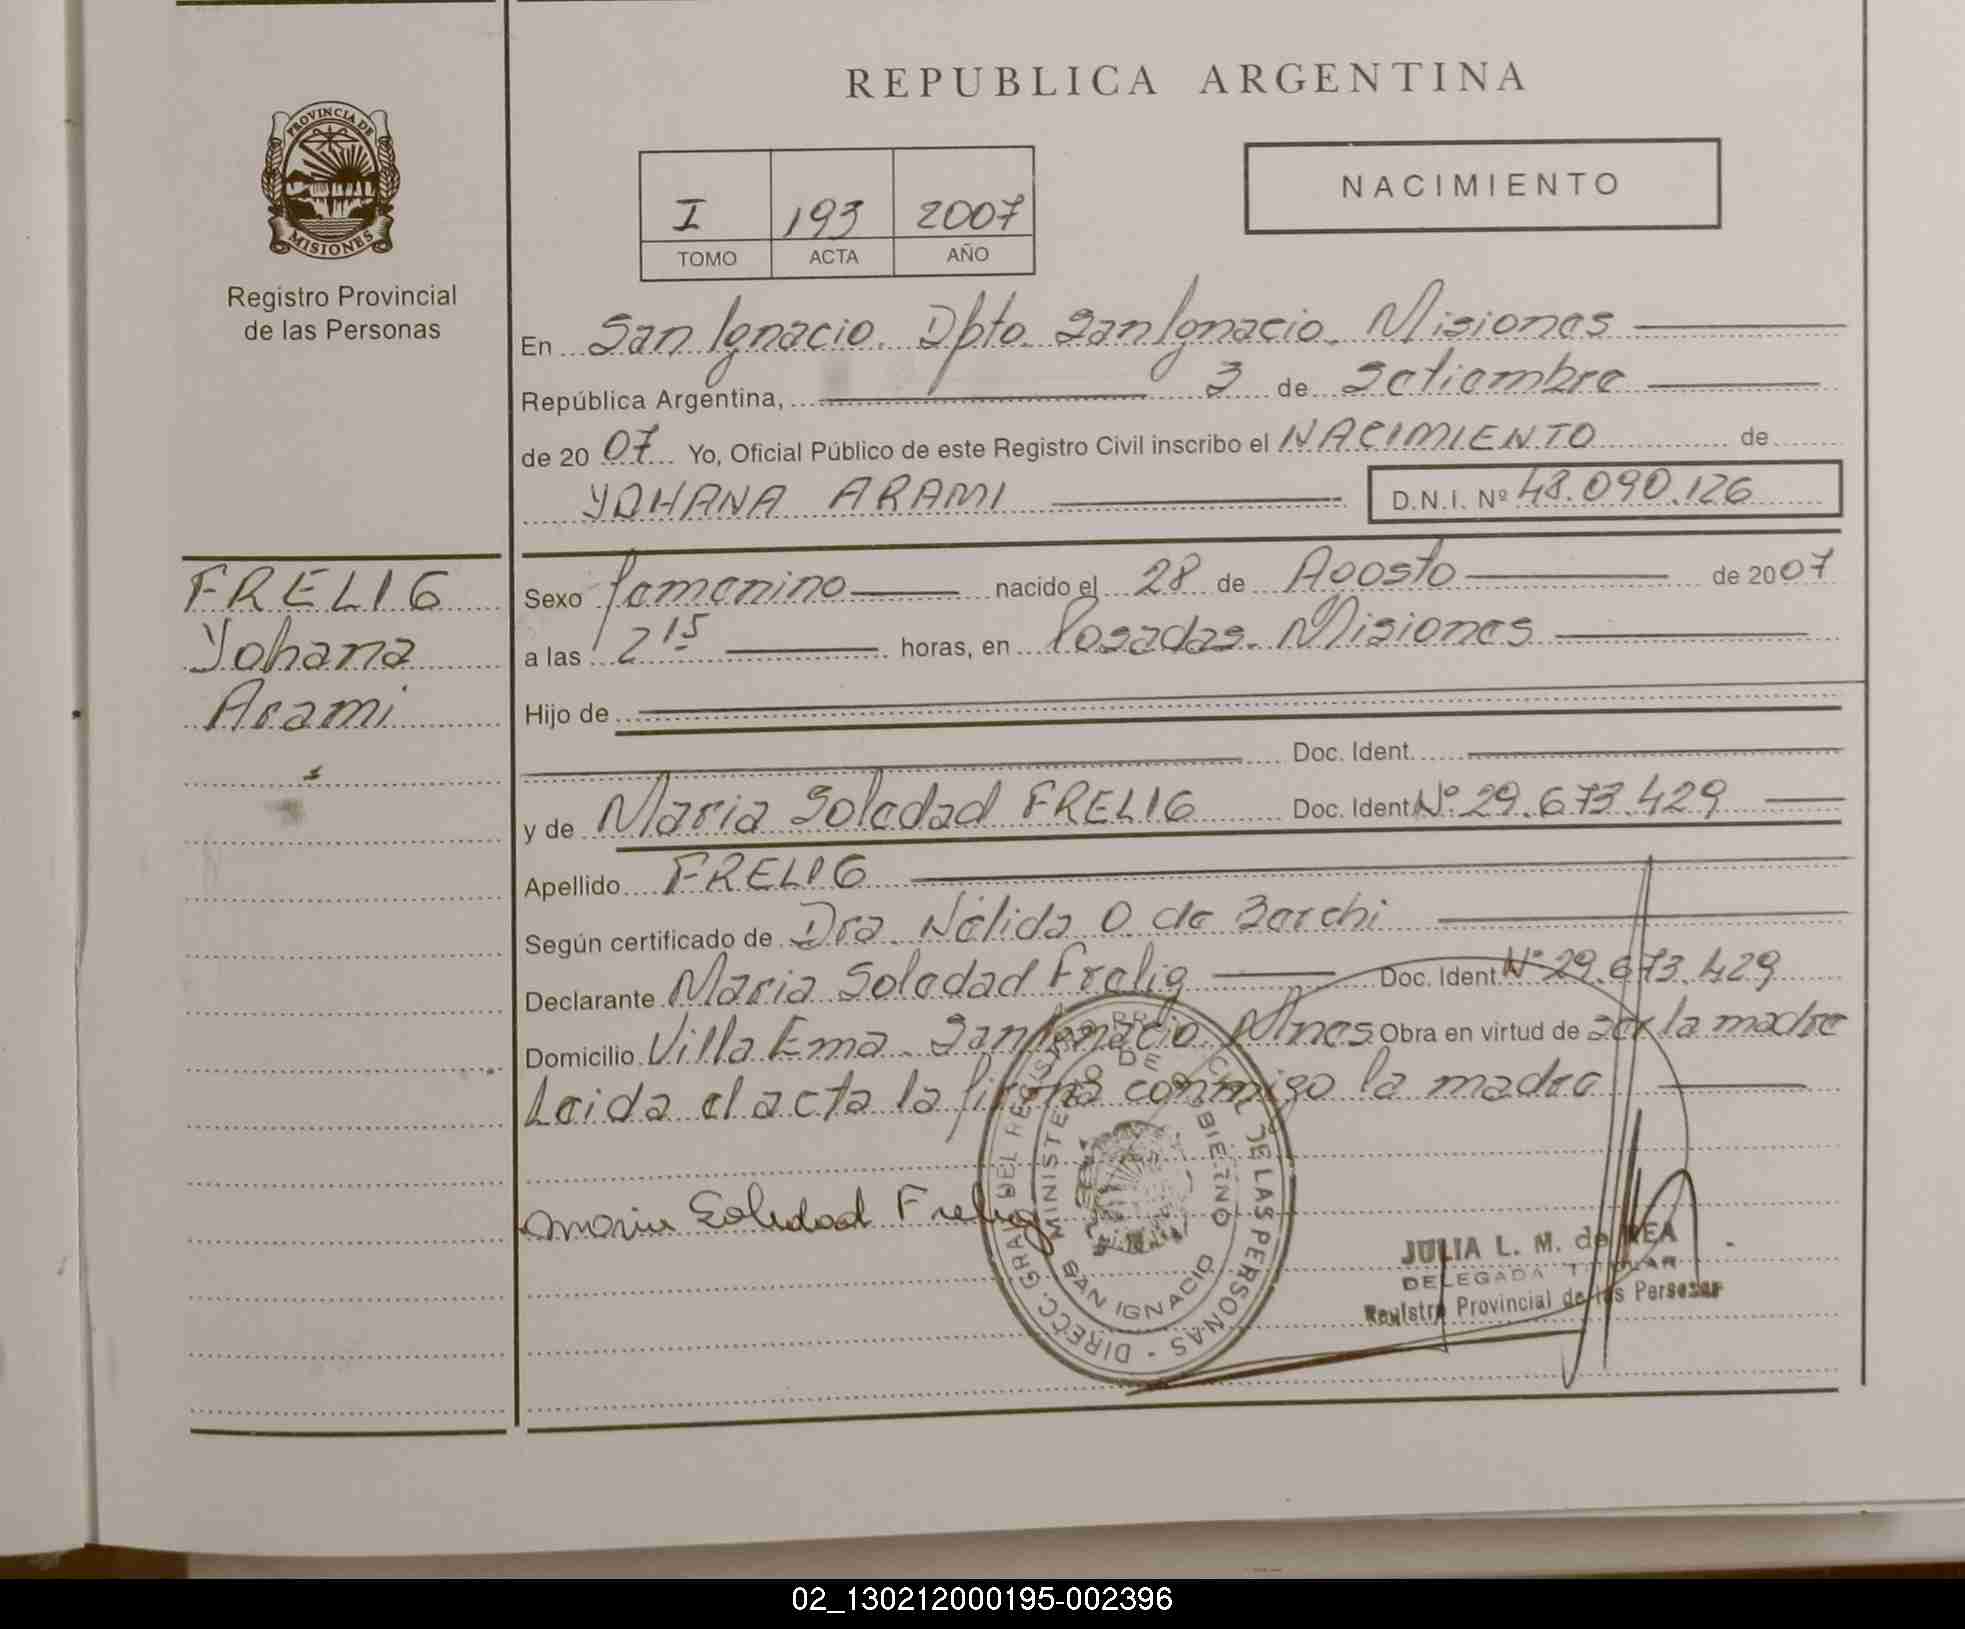 REPUBLICA ARGENTINA
PROVINCIA DE
MISIONES
Registro Provincial
de las Personas
NACIMIENTO
I 193 2007
TOMO ACTA AÑO
En San Ignacio. Dpto. San Ignacio. Misiones
República Argentina, 3 de Setiembre
de 2007 Yo, Oficial Público de este Registro Civil inscribo el NACIMIENTO de
YOHANA ARAMI D.N.I. Nº 48.090.126
FRELIG
Yohana
Arami
Sexo femenino nacido el 28 de Agosto de 2007
a las 2 15 horas, en Posadas. Misiones
Hijo de
Doc. Ident.
y de Maria Soledad FRELIG Doc. Ident Nº 29.673.429
Apellido FRELIG
Según certificado de Dra. Nélida O. de
Declarante Maria Soledad Frelig Doc. Ident. Nº 29.673.429
Domicilio Villa Ema. San Ignacio Mnes Obra en virtud de ser la madre
Leida el acta la firma conmigo la madre
Maria Soledad Frelig
DIRECC. GRAL DEL REGISTRO PROVINCIAL DE LAS PERSONAS -
MINISTERIO DE GOBIERNO
SAN IGNACIO
JULIA L. M. de REA
DELEGADA TITULAR
Registro Provincial de las Personas
02_130212000195-002396